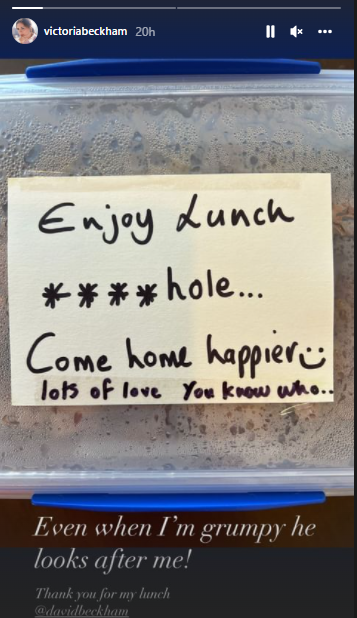 victoriabeckham 20h
Enjoy Lunch
****hole...
Come home happier
lots of love You know who..
Even when I'm grumpy he
looks after me!
Thank you for my lunch
@davidbeckham